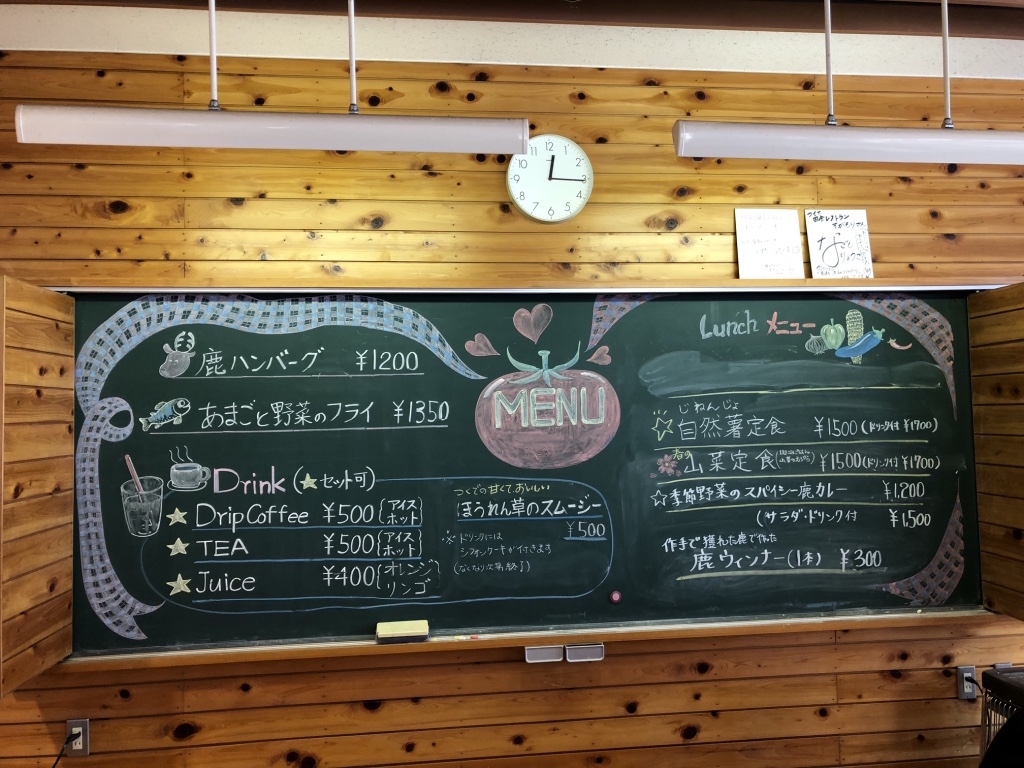 12 1 2 3 4 5 6 7 8 9 10 11
田舎レストラン
MENU
鹿ハンバーグ ¥1200
あまごと野菜のフライ ¥1350
Drink (★セット可)
★ Drip Coffee ¥500 {アイス ホット
★ TEA ¥500 {アイス ホット
★ Juice ¥400 {オレンジ リンゴ
つくでの甘くて、おいしい
ほうれん草のスムージー
¥500
※ドリンクには
シフォンケーキが付きます
(なくなり次第終了)
Lunch メニュー
じねんじょ
☆自然薯定食 ¥1500(ドリンク付 ¥1700)
春の山菜定食 ¥1500(ドリンク付 ¥1700)
☆季節野菜のスパイシー鹿カレー ¥1,200
(サラダ・ドリンク付 ¥1,500
作手で獲れた鹿で作った
鹿ウィンナー(1本) ¥300